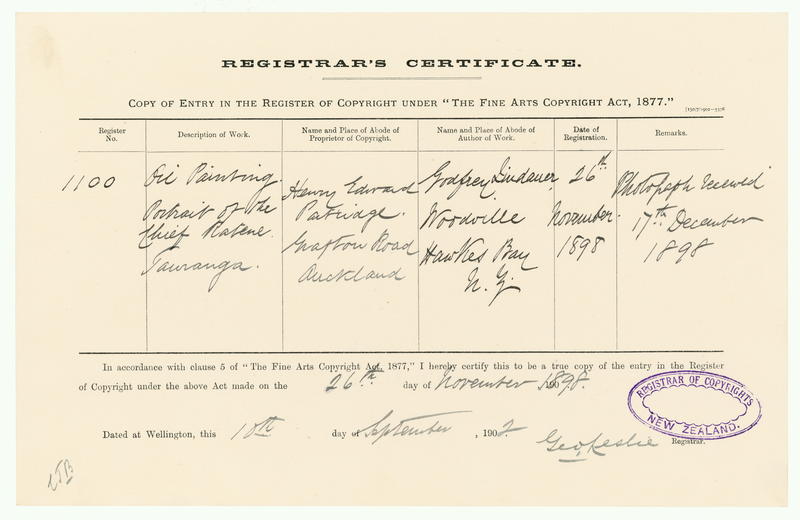 REGISTRAR'S CERTIFICATE.
COPY OF ENTRY IN THE REGISTER OF COPYRIGHT UNDER "THE FINE ARTS COPYRIGHT ACT, 1877."
Register No.
Description of Work.
Name and Place of Abode of Proprietor of Copyright.
Name and Place of Abode of Author of Work.
Date of Registration.
Remarks.
1100
Oil Painting.
Portrait of the
Chief Ratene
Tauranga.
Henry Edward
Patridge.
Grafton Road
Auckland
Godfrey Lindauer,
Woodville
Hawkes Bay
N.Z.
26th
November
1898
Photograph received
17th December
1898
In accordance with clause 5 of "The Fine Arts Copyright Act, 1877," I hereby certify this to be a true copy of the entry in the Register
of Copyright under the above Act made on the 26th day of November 1898.
Dated at Wellington, this 10th day of September, 1902.
Geo. Leslie Registrar.
REGISTRAR OF COPYRIGHTS
NEW ZEALAND.